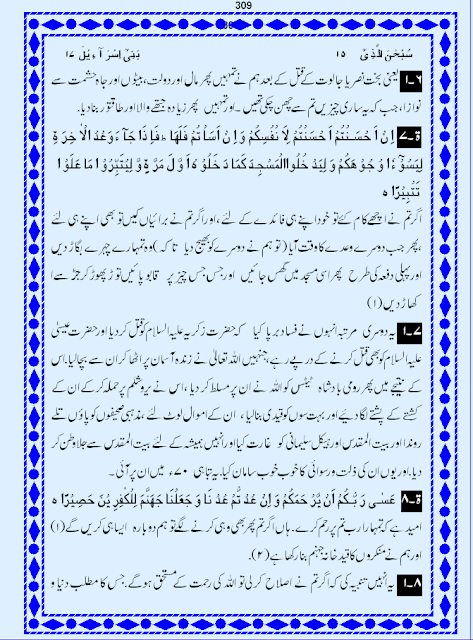 309
سُبْحٰنَ الَّذِیْ ۱۵ بَنِیْ اِسْرَآءِیْل ۱۷
۶۔۱ یعنی بخت نصر یا جالوت کے قتل کے بعد ہم نے تمہیں پھر مال اور دولت، بیٹوں اور جاہ حشمت سے
نوازا، جب کہ یہ ساری چیزیں تم سے چھن چکی تھیں۔ اور تمہیں پھر زیادہ جتھے والا اور طاقتور بنا دیا۔
ۃ۔۷ اِنْ اَحْسَنْتُمْ اَحْسَنْتُمْ لِاَ نْفُسِكُمْ وَ اِنْ اَسَاْ تُمْ فَلَهَا ۭ فَاِذَا جَآءَ وَعْدُ الْاٰ خِرَ ةِ
لِیَسُوْٓ ءٗا وُ جُوْ هَكُمْ وَ لِیَدْ خُلُوا الْمَسْجِدَ كَمَا دَ خَلُوْ هُ اَوَّ لَ مَرَّ ةٍ وَّ لِیُتَبِّرُ وْا مَا عَلَوْ ا
تَتْبِیْرًا ہ
اگر تم نے اچھے کام کئے تو خود اپنے ہی فائدے کے لئے، اور اگر تم نے برائیاں کیں تو بھی اپنے ہی لئے
،پھر جب دوسرے وعدے کا وقت آیا (تو ہم نے دوسرے کو بھیج دیا تاکہ) وہ تمہارے چہرے بگاڑ دیں
اور پہلی دفعہ کی طرح پھر اسی مسجد میں گھس جائیں اور جس جس چیز پر قابو پائیں توڑ پھوڑ کر جڑ سے ا
کھاڑ دیں (۱)
۷۔۱ یہ دوسری مرتبہ انہوں نے فساد برپا کیا کہ حضرت زکریہ علیہ السلام کو قتل کر دیا اور حضرت عیسٰی
علیہ السلام کو بھی قتل کرنے کے درپے رہے، جنہیں اللہ تعالٰی نے زندہ آسمان پر اٹھا کر ان سے بچا لیا۔ اس
کے نتیجے میں پھر رومی بادشاہ ٹیٹس کو اللہ نے ان پر مسلط کر دیا، اس نے یروشلم پر حملہ کر کے ان کے
کشتے کے پشتے لگا دیئے اور بہت سوں کو قیدی بنا لیا، ان کے اموال لوٹ لئے، مذہبی صحیفوں کو پاؤں تلے
روندا اور بیت المقدس اور ہیکل سلیمانی کو غارت کیا اور انہیں ہمیشہ کے لئے بیت المقدس سے جلا وطن کر
دیا، اور یوں ان کی ذلت و رسوائی کا خوب خوب سامان کیا۔ یہ تباہی ۷۰ء میں ان پر آئی۔
ۃ۔۸ عَسٰی رَ بُّكُمْ اَنْ یَّرْ حَمَكُمْ وَ اِنْ عُدْ تُّمْ عُدْ نَا وَ جَعَلْنَا جَهَنَّمَ لِلْكٰفِرِ یْنَ حَصِیْرًا ہ
امید ہے کہ تمہارا رب تم پر رحم کرے۔ ہاں اگر تم پھر بھی وہی کرنے لگے تو ہم دوبارہ ایسا ہی کریں گے (۱)
اور ہم نے منکروں کا قید خانہ جہنم بنا رکھا ہے (۲)۔
۸۔۱ یہ انہیں تنبیہ کی کہ اگر تم نے اصلاح کر لی تو اللہ کی رحمت کے مستحق ہوگے جس کا مطلب دنیا و